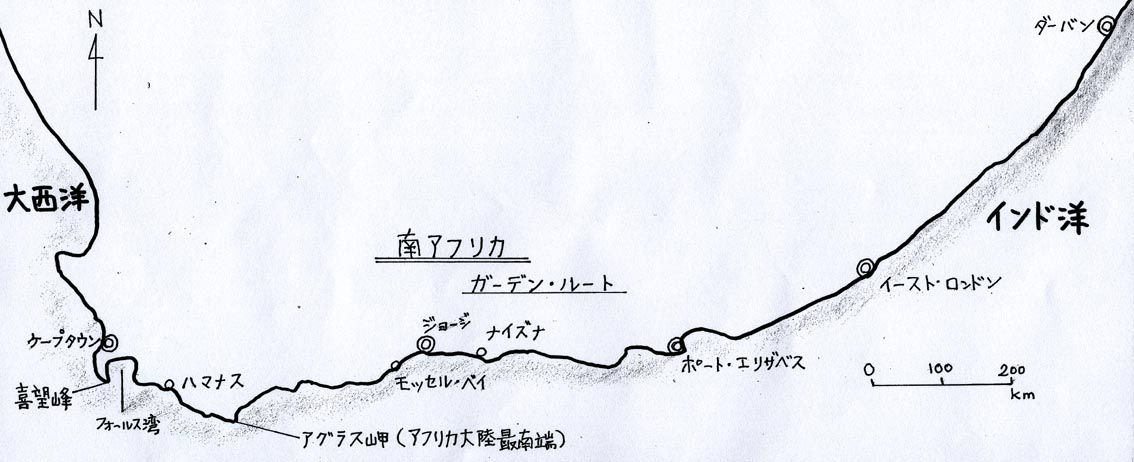 N
ダーバン
大西洋
インド洋
南アフリカ
ガーデン・ルート
イースト・ロンドン
ジョージ
ナイズナ
ケープタウン
ポート・エリザベス
モッセル・ベイ
ハマナス
喜望峰
フォールス湾
アグラス岬(アフリカ大陸最南端)
0 100 200
km